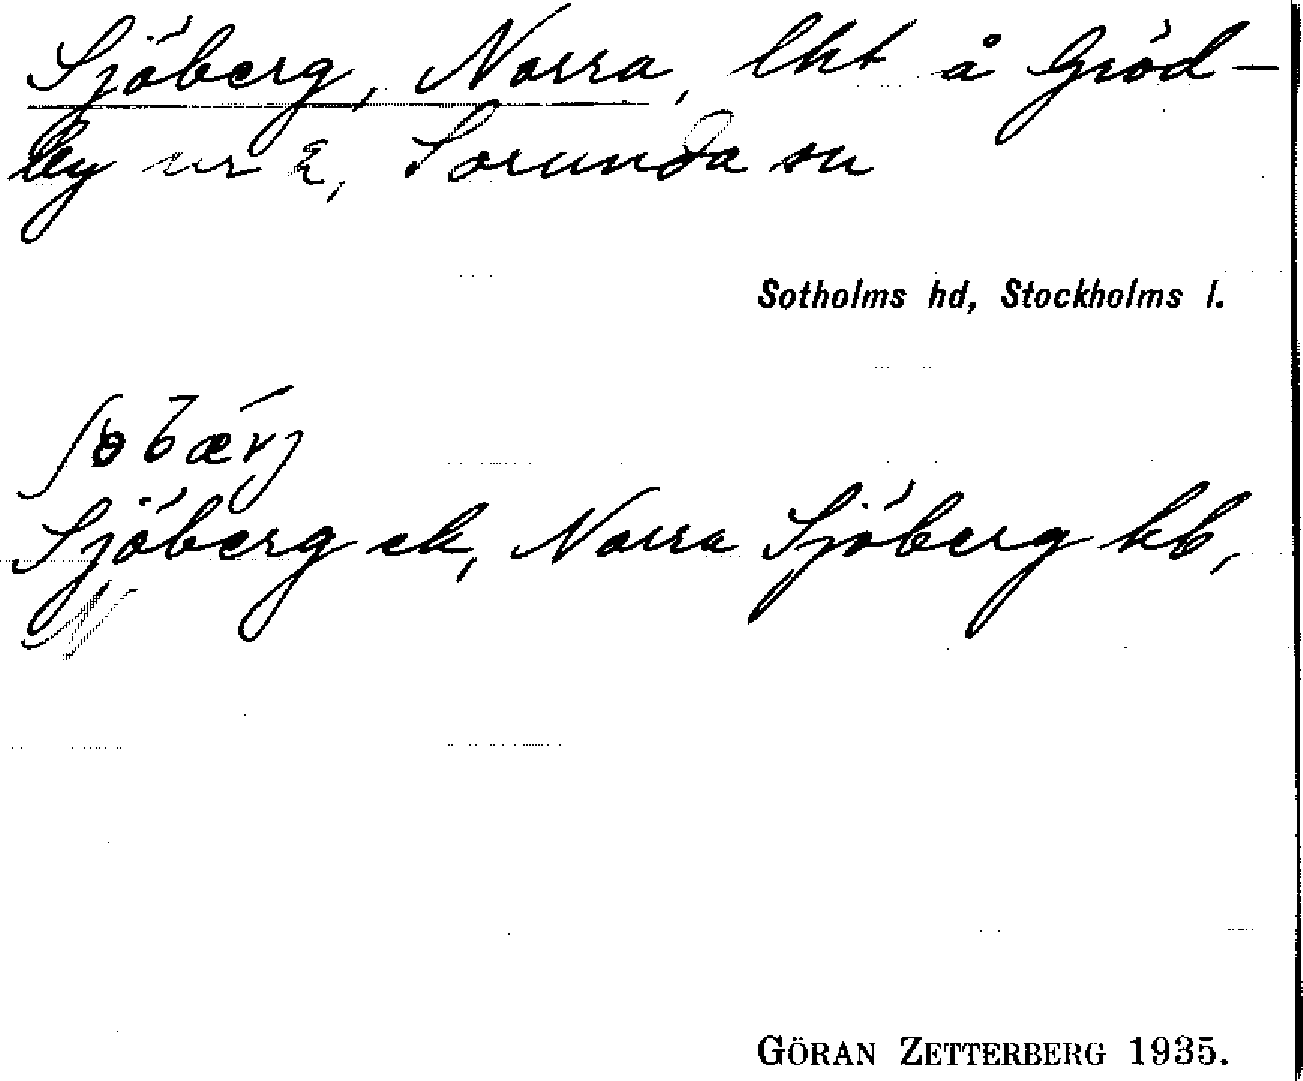 Sjöberg, Norra, lht å Gröd-
by nr 2, Sorunda sn
Sotholms hd, Stockholms l.
Sjöberg ek, Norra Sjöberg kb,
GÖRAN ZETTERBERG 1935.